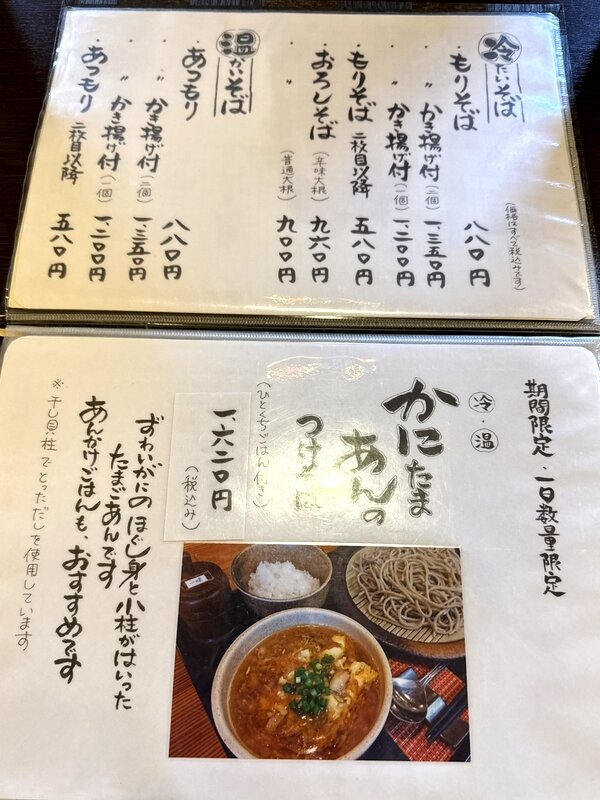 冷たいそば
(価格はすべて税込みです)
・もりそば 八八〇円
・〃 かき揚げ付(二個) 一、三五〇円
・〃 かき揚げ付(一個) 一、二〇〇円
・もりそば 二枚目以降 五八〇円
・おろしそば(辛味大根) 九六〇円
・〃(普通大根) 九〇〇円
温かいそば
・あつもり 八八〇円
・〃 かき揚げ付(二個) 一、三五〇円
・〃 かき揚げ付(一個) 一、二〇〇円
・あつもり 二枚目以降 五八〇円
期間限定・一日数量限定
冷・温
かにたま
あんの
つけ
(ひとくちごはん付き)
一、六二〇円
(税込み)
ずわいがにのほぐし身と小柱がはいった
たまごあんです
あんかけごはんも、おすすめです
※干し貝柱でとっただしを使用しています